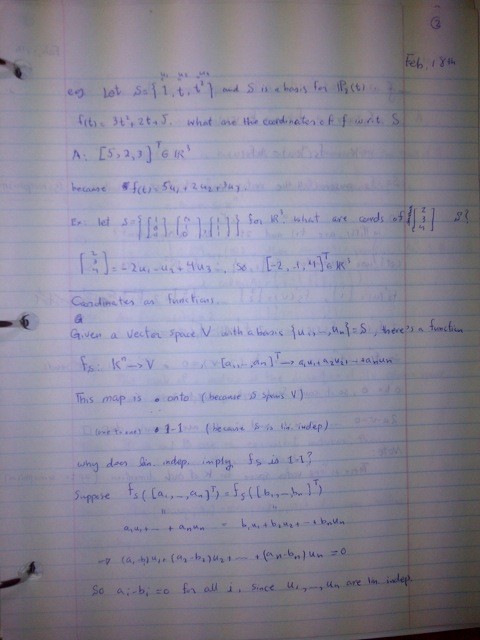 ③
Feb. 18th
u₁ u₂ u₃
eg) Let S={1, t, t²}, and S is a basis for P₂(t)
f(t) = 3t²+2t+5. What are the coordinates of f w.r.t. S
A: [5, 2, 3]ᵀ ∈ K³
because f(t) = 5u₁ + 2u₂ + 3u₃
Ex: let S = for K³. What are coords of [2 3 4]
[2 3 4] = -2u₁ - u₂ + 4u₃ , so [-2, -1, 4]ᵀ ∈ K³
Coordinates as functions
Given a vector space V with a basis {u₁, ..., uₙ} = S, there's a function
fₛ: Kⁿ → V [a₁, ..., aₙ]ᵀ → a₁u₁ + a₂u₂ + ... + aₙuₙ
This map is • onto (because S spans V)
• 1-1 (because S is lin. indep)
why does lin. indep. imply fₛ is 1-1?
Suppose fₛ([a₁, ..., aₙ]ᵀ) = fₛ([b₁, ..., bₙ]ᵀ)
a₁u₁ + ... + aₙuₙ = b₁u₁ + b₂u₂ + ... + bₙuₙ
→ (a₁-b₁)u₁ + (a₂-b₂)u₂ + ... + (aₙ-bₙ)uₙ = 0
So aᵢ-bᵢ = 0 for all i, since u₁, ..., uₙ are lin indep